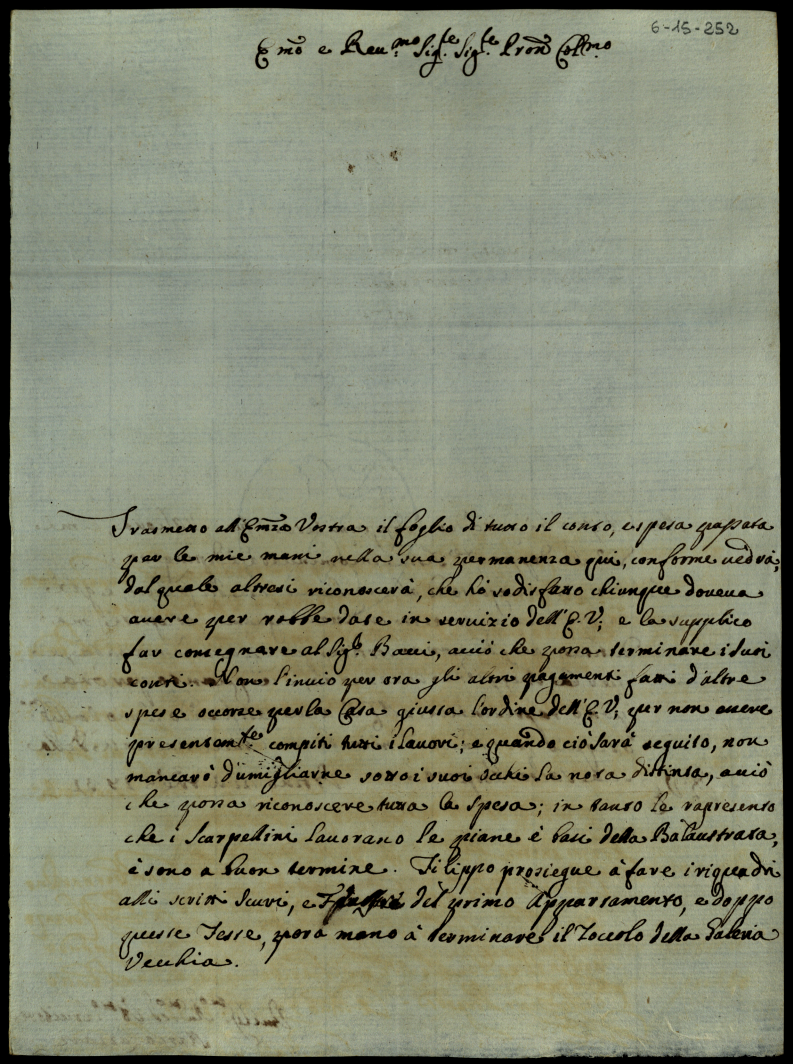 6-15-252
Emõ e Reu.mo Sig.re Sig.re Pron̄ Coll.mo
Trasmetto all'Emz̃a Vostra il foglio di tutto il conto, e spesa passata
per le mie mani nella sua permanenza qui, conforme uedrà,
dal quale altresi riconoscerà, che hò sodisfatto chiunque doueua
auere per robbe date in seruizio dell'E.V; e la supplico
far consegnare al Sig.r Bacci, acciò che possa terminare i suoi
conti. Non l'inuio per ora gli altri pagamenti fatti d'altre
spese occorse per la Casa giusta l'ordine dell'E.V, per non auere
presentam.te compiti tutti i lauori; e quando ciò sarà seguito, non
mancarò d'umigliarne sotto i suoi occhi la nota distinta, acciò
che possa riconoscere tutta la spesa; in tanto le rapresento
che i Scarpellini lauorano le piane è basi della Balaustrata,
è sono a buon termine. Filippo prosiegue à fare i riquadri
alli scritti scuri, e del primo Appartamento, e doppo
queste Feste, porà mano à terminare il Zoccolo della Galeria
Vecchia.